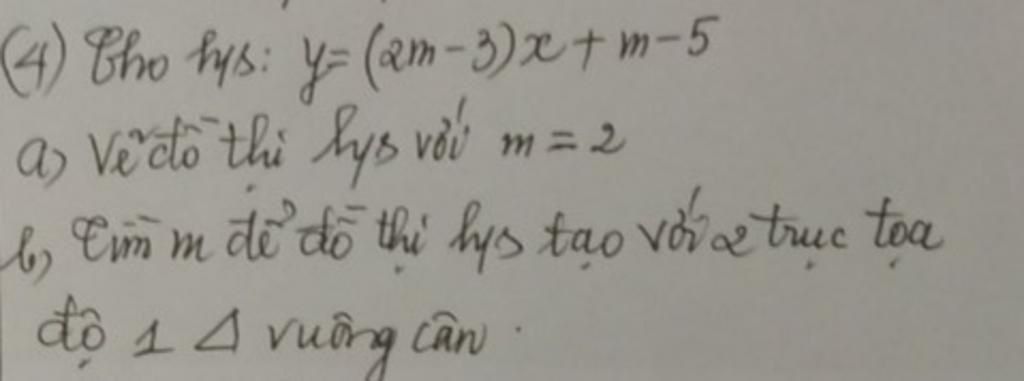 (4) Cho hs: y=(2m-3)x+m-5
a) Vẽ đồ thị hs với m=2
b) Tìm m để đồ thị hs tạo với 2 trục tọa
độ 1 Δ vuông cân.